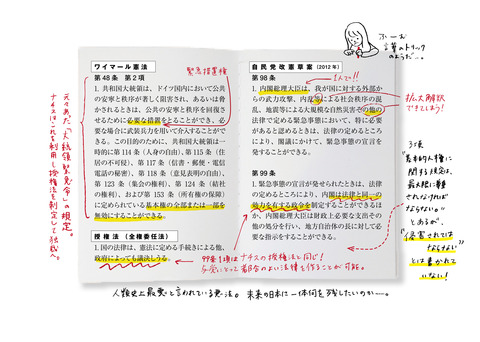 ワイマール憲法
緊急措置権
第48条 第2項
1. 共和国大統領は、ドイツ国内において公共
の安寧と秩序が著しく阻害され、あるいは脅
かされるときは、公共の安寧と秩序を回復さ
せるために必要な措置をとることができ、必
要な場合に武装兵力を用いて介入することがで
きる。この目的のために、共和国大統領は一
時的に第 114 条 (人身の自由)、第 115 条 (住
居の不可侵)、第 117 条 (信書・郵便・電信
電話の秘密)、第 118 条 (意見表明の自由)、
第 123 条 (集会の権利)、第 124 条 (結社
の権利)、および第 153 条 (所有権の保障)
に定められている基本権の全部または一部を
無効にすることができる。
授権法 (全権委任法)
1. 国の法律は、憲法に定める手続きによる他、
政府によっても議決しうる。
元々あった「大統領緊急令」の規定。
ナチスはこれを利用し授権法を制定して独裁へ。
自民党改憲草案 (2012 年)
第98条
1人で!!
1. 内閣総理大臣は、我が国に対する外部か
らの武力攻撃、内乱等による社会秩序の混
乱、地震等による大規模な自然災害その他の
法律で定める緊急事態において、特に必要
があると認めるときは、法律の定めるところ
により、閣議にかけて、緊急事態の宣言を
発することができる。
第99条
1. 緊急事態の宣言が発せられたときは、法律
の定めるところにより、内閣は法律と同一の
効力を有する政令を制定することができるほ
か、内閣総理大臣は財政上必要な支出その
他の処分を行い、地方自治体の長に対して必
要な指示をすることができる。
99条1項はナチスの授権法と同じ!
与党にとって都合のよい法律を作ることが可能。
ふーむ
言葉のトリック
のようだ…。
拡大解釈
できてしまう!
3項
基本的人権に
関する規定は、
最大限に尊重
されなければ
ならない。
とあるが、
"侵害されては
ならない"
とは書かれて
いない!
人類史上最悪と言われている悪法。未来の日本に一体何を残したいのか…。